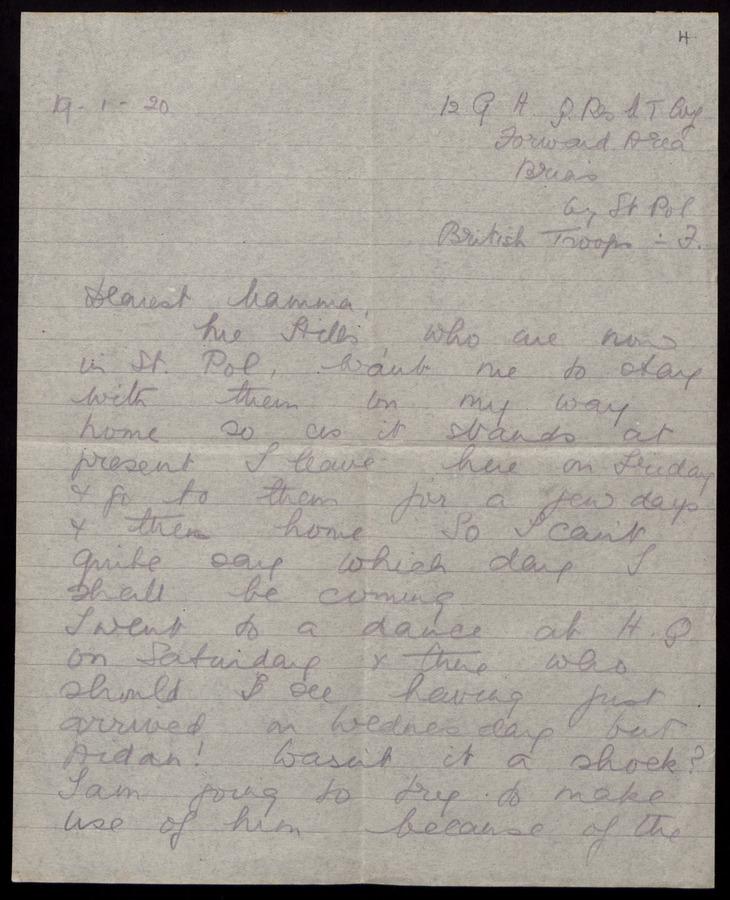 4
19 - 1 - 20 12 G H Q Res M T Coy
Forward Area
Brias
by St Pol
British Troops - F.
Dearest Mamma,
The who are now
in St. Pol, want me to stay
with them on my way
home so as it stands at
present I leave here on Friday
& go to them for a few days
& then home So I can't
quite say which day I
shall be coming
I went to a dance at H. Q
on Saturday & there who
should I see having just
arrived on Wednesday but
Aidan! Wasn't it a shock?
I am going to try to make
use of him because of the